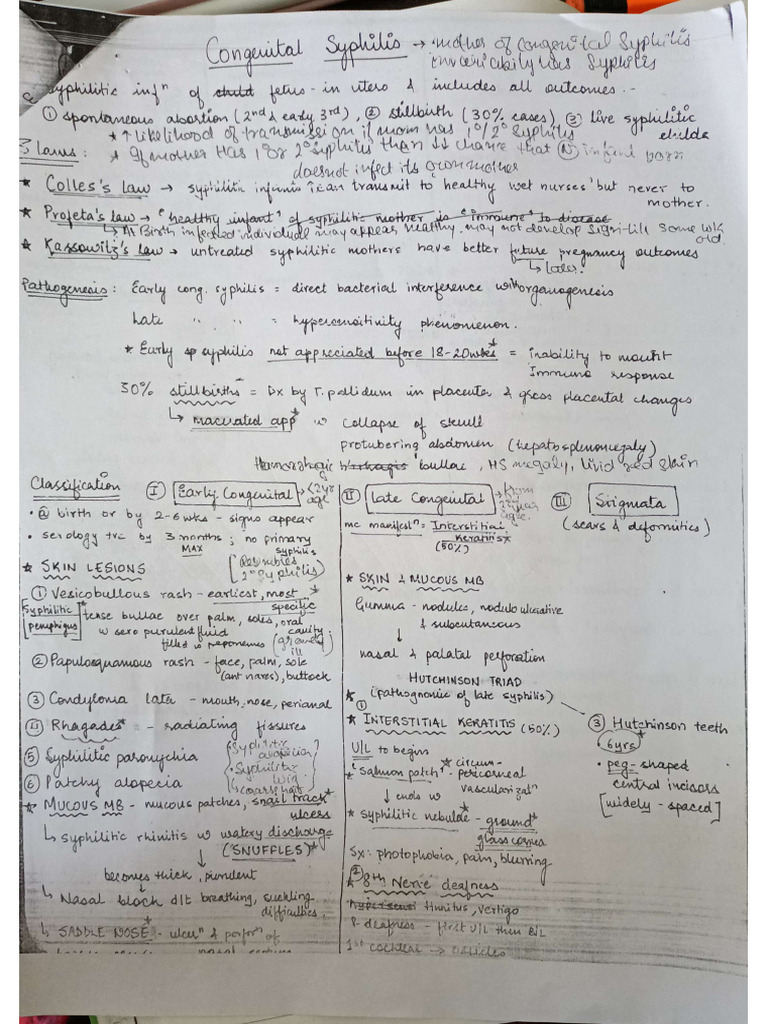 Congenital Syphilis → mother of congenital syphilis
invariably has syphilis
syphilitic infⁿ of child fetus - in utero & includes all outcomes :-
① spontaneous abortion (2nd & early 3rd), ② stillbirth (30% cases), ③ live syphilitic
* ↑ likelihood of transmission if mom has 1°/2° syphilis
3 laws : * If mother has 1° or 2° syphilis than ↓↓ chance that Ⓝ infant born
doesnot infect its own mother
* Colles's law → syphilitic infants can transmit to healthy wet nurses but never to
mother.
* Profeta's law → "healthy infant" of syphilitic mother is "immune" to disease
↳ At Birth infected individual may appear healthy. may not develop sign till some wk
old.
* Kassowitz's law → untreated syphilitic mothers have better future pregnancy outcomes
↳ later.
Pathogenesis : Early cong. syphilis = direct bacterial interference with organogenesis
Late " " = hypersensitivity phenomenon.
* Early syphilis not appreciated before 18-20wks* = inability to mount
immune response
30% stillbirths = Dx by T. pallidum in placenta & gross placental changes
↳ macerated app* w collapse of skull
protubering abdomen (hepatosplenomegaly)
Haemorrhagic bullae, HS megaly, livid red skin
Classification
Ⓘ Early Congenital → <2yr
age
• @ birth or by 2-6 wks - signs appear
• serology +ve by 3 months ; no primary
MAX syphilis
* SKIN LESIONS [Resembles
2° syphilis)
① Vesicobullous rash - earliest, most *
specific
[Syphilitic
pemphigus] tense bullae over palm, soles, oral
cavity
w sero purulent fluid
filled w treponemes
② Papulosquamous rash - face, palm, sole
(ant nares), buttock
③ Condyloma lata - mouth, nose, perianal
④ Rhagades* - radiating fissures
⑤ Syphilitic paronychia {Syphilitic
alopecia
⑥ Patchy alopecia • Syphilitic
wig
* MUCOUS MB - mucous patches, snail track*
ulcers
↳ syphilitic rhinitis w watery discharge
(SNUFFLES)*
↓
becomes thick, purulent
↓
↳ Nasal block d/t breathing, suckling
difficulties,
↳ SADDLE NOSE* - ulcerⁿ & perforⁿ of
ⒾⒾ Late Congenital → from
mc manifestⁿ = Interstitial
Keratitis*
(50%)
* SKIN & MUCOUS MB
Gumma - nodules, nodulo ulcerative
& subcutaneous
↓
nasal & palatal perforation
HUTCHINSON TRIAD
* (pathognomic of late syphilis)
①
* INTERSTITIAL KERATITIS (50%)
U/L to begin
* "Salmon patch" - * circum-
pericorneal
vascularizatⁿ
↓ ends w
* syphilitic nebulae - ground*
glass cornea
Sx : photophobia, pain, blurring
②
* 8th Nerve deafness
tinnitus, vertigo
deafness - first U/L then B/L
1st cochlear → ossicles
ⒾⒾⒾ Stigmata
(scars & deformities)
③ Hutchinson teeth
6yrs *
• peg-shaped
central incisors
[widely-spaced]